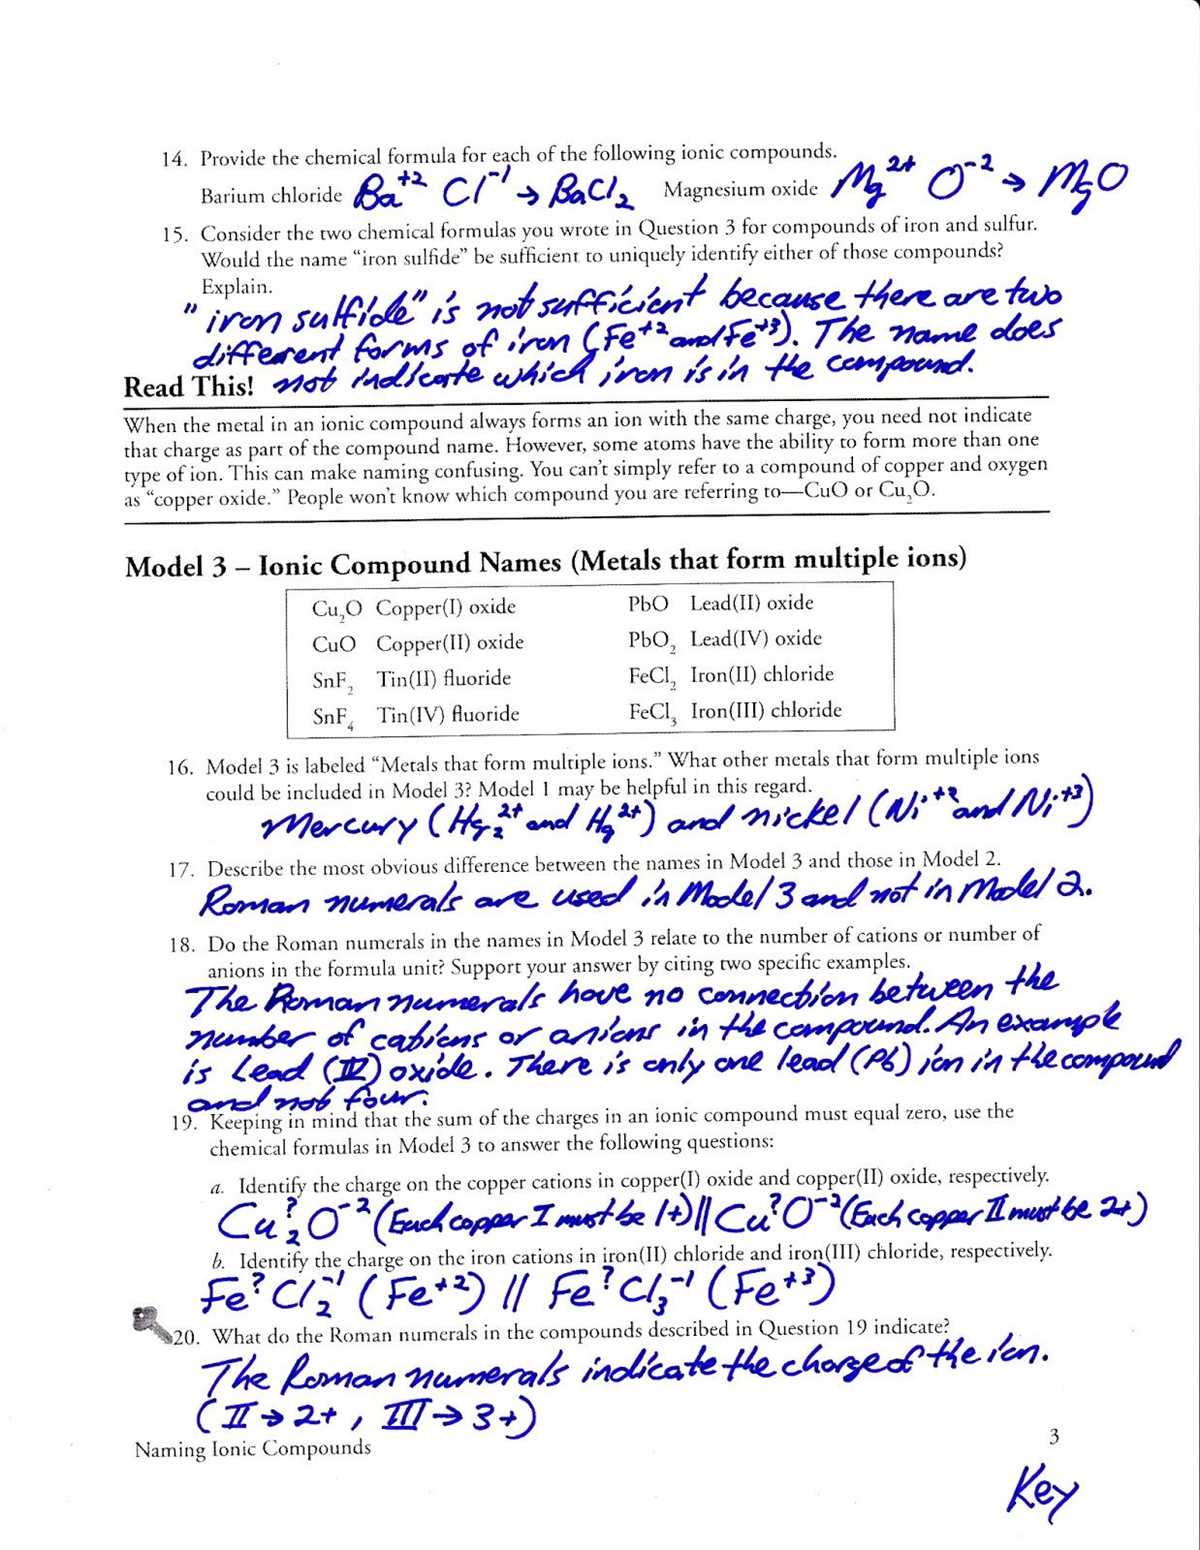 14. Provide the chemical formula for each of the following ionic compounds.
Barium chloride Ba⁺² Cl⁻¹ → BaCl₂ Magnesium oxide Mg²⁺ O⁻² → MgO
15. Consider the two chemical formulas you wrote in Question 3 for compounds of iron and sulfur.
Would the name “iron sulfide” be sufficient to uniquely identify either of those compounds?
Explain.
"iron sulfide" is not sufficient because there are two
different forms of iron (Fe⁺² and Fe⁺³). The name does
Read This! not indicate which iron is in the compound.
When the metal in an ionic compound always forms an ion with the same charge, you need not indicate
that charge as part of the compound name. However, some atoms have the ability to form more than one
type of ion. This can make naming confusing. You can’t simply refer to a compound of copper and oxygen
as “copper oxide.” People won’t know which compound you are referring to—CuO or Cu₂O.
Model 3 – Ionic Compound Names (Metals that form multiple ions)
Cu₂O Copper(I) oxide PbO Lead(II) oxide
CuO Copper(II) oxide PbO₂ Lead(IV) oxide
SnF₂ Tin(II) fluoride FeCl₂ Iron(II) chloride
SnF₄ Tin(IV) fluoride FeCl₃ Iron(III) chloride
16. Model 3 is labeled “Metals that form multiple ions.” What other metals that form multiple ions
could be included in Model 3? Model 1 may be helpful in this regard.
Mercury (Hg₂²⁺ and Hg²⁺) and nickel (Ni⁺² and Ni⁺³)
17. Describe the most obvious difference between the names in Model 3 and those in Model 2.
Roman numerals are used in Model 3 and not in Model 2.
18. Do the Roman numerals in the names in Model 3 relate to the number of cations or number of
anions in the formula unit? Support your answer by citing two specific examples.
The Roman numerals have no connection between the
number of cations or anions in the compound. An example
is Lead (IV) oxide. There is only one lead (Pb) ion in the compound
and not four.
19. Keeping in mind that the sum of the charges in an ionic compound must equal zero, use the
chemical formulas in Model 3 to answer the following questions:
a. Identify the charge on the copper cations in copper(I) oxide and copper(II) oxide, respectively.
Cu₂? O⁻² (Each copper I must be 1+) // Cu? O⁻² (Each copper II must be 2+)
b. Identify the charge on the iron cations in iron(II) chloride and iron(III) chloride, respectively.
Fe? Cl₂⁻¹ (Fe⁺²) // Fe? Cl₃⁻¹ (Fe⁺³)
20. What do the Roman numerals in the compounds described in Question 19 indicate?
The Roman numerals indicate the charge of the ion.
(II → 2+, III → 3+)
Naming Ionic Compounds 3
Key